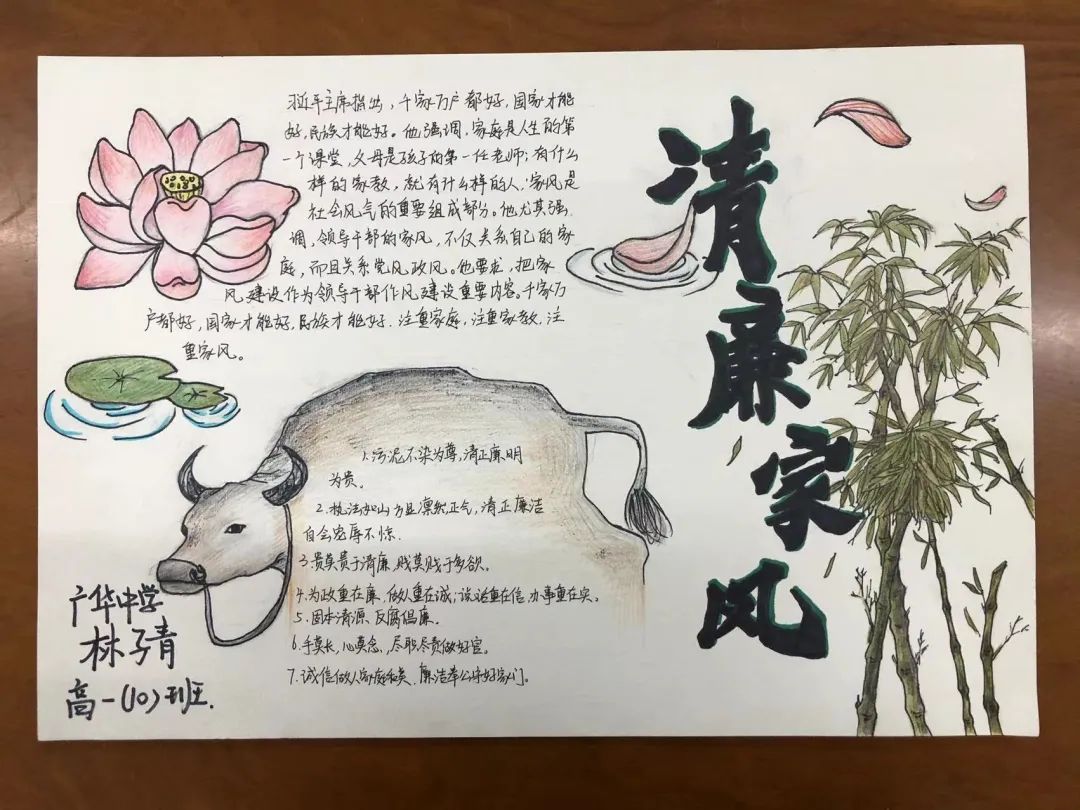 习近平主席指出，千家万户都好，国家才能
好，民族才能好。他强调，家庭是人生的第
一个课堂，父母是孩子的第一任老师；有什么
样的家教，就有什么样的人。家风是
社会风气的重要组成部分。他尤其强
调，领导干部的家风，不仅关系自己的家
庭，而且关系党风政风。他要求，把家
风建设作为领导干部作风建设重要内容。千家万
户都好，国家才能好，民族才能好。注重家庭，注重家教，注
重家风。
清廉家风
1.污泥不染为尊，清正廉明
为贵。
2.执法如山方显凛然正气，清正廉洁
自会宠辱不惊.
3.贵莫贵于清廉，贱莫贱于多欲。
4.为政重在廉，做人重在诚；说话重在信，办事重在实。
5.固本清源，反腐倡廉。
6.手莫长，心莫念，尽职尽责做好官。
7.诚信做人家庭和美，廉洁奉公好家门。
广华中学
林子青
高一(10)班.